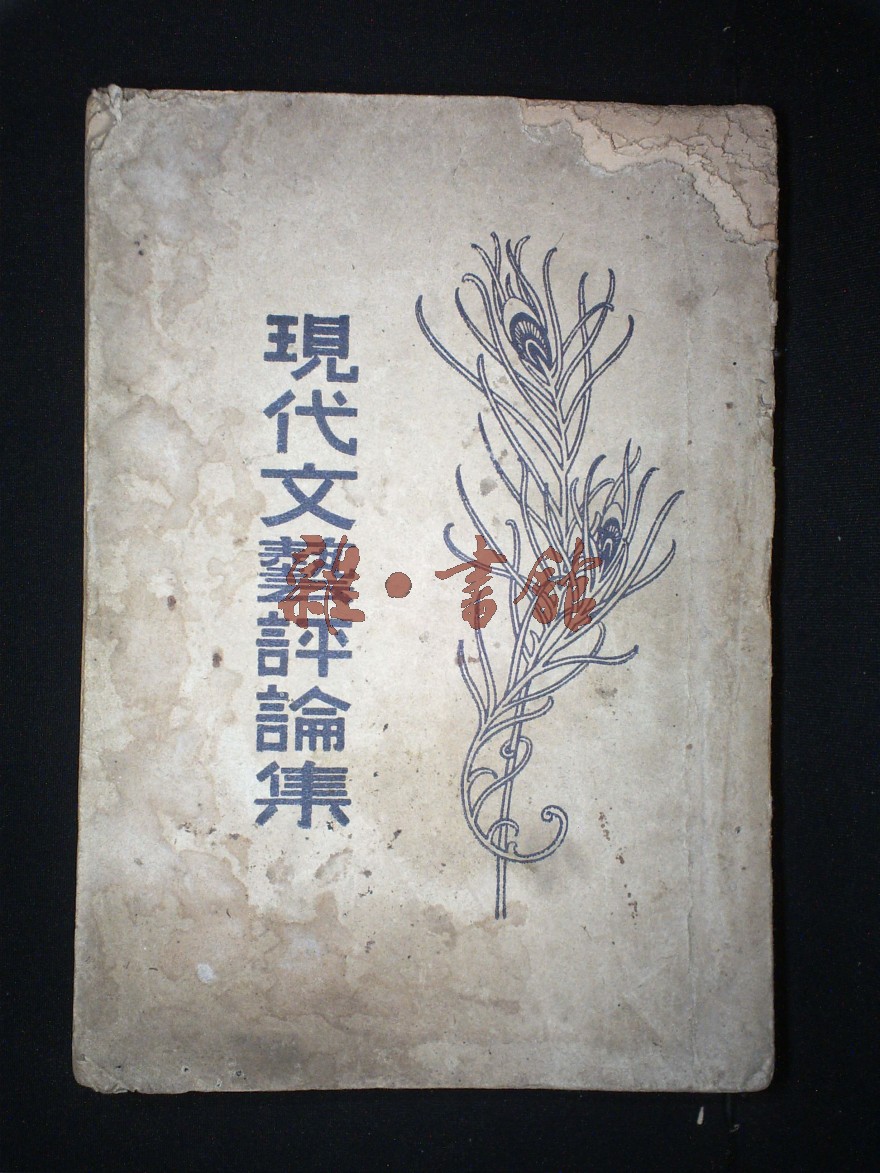 現代文藝評論集
雜·書館